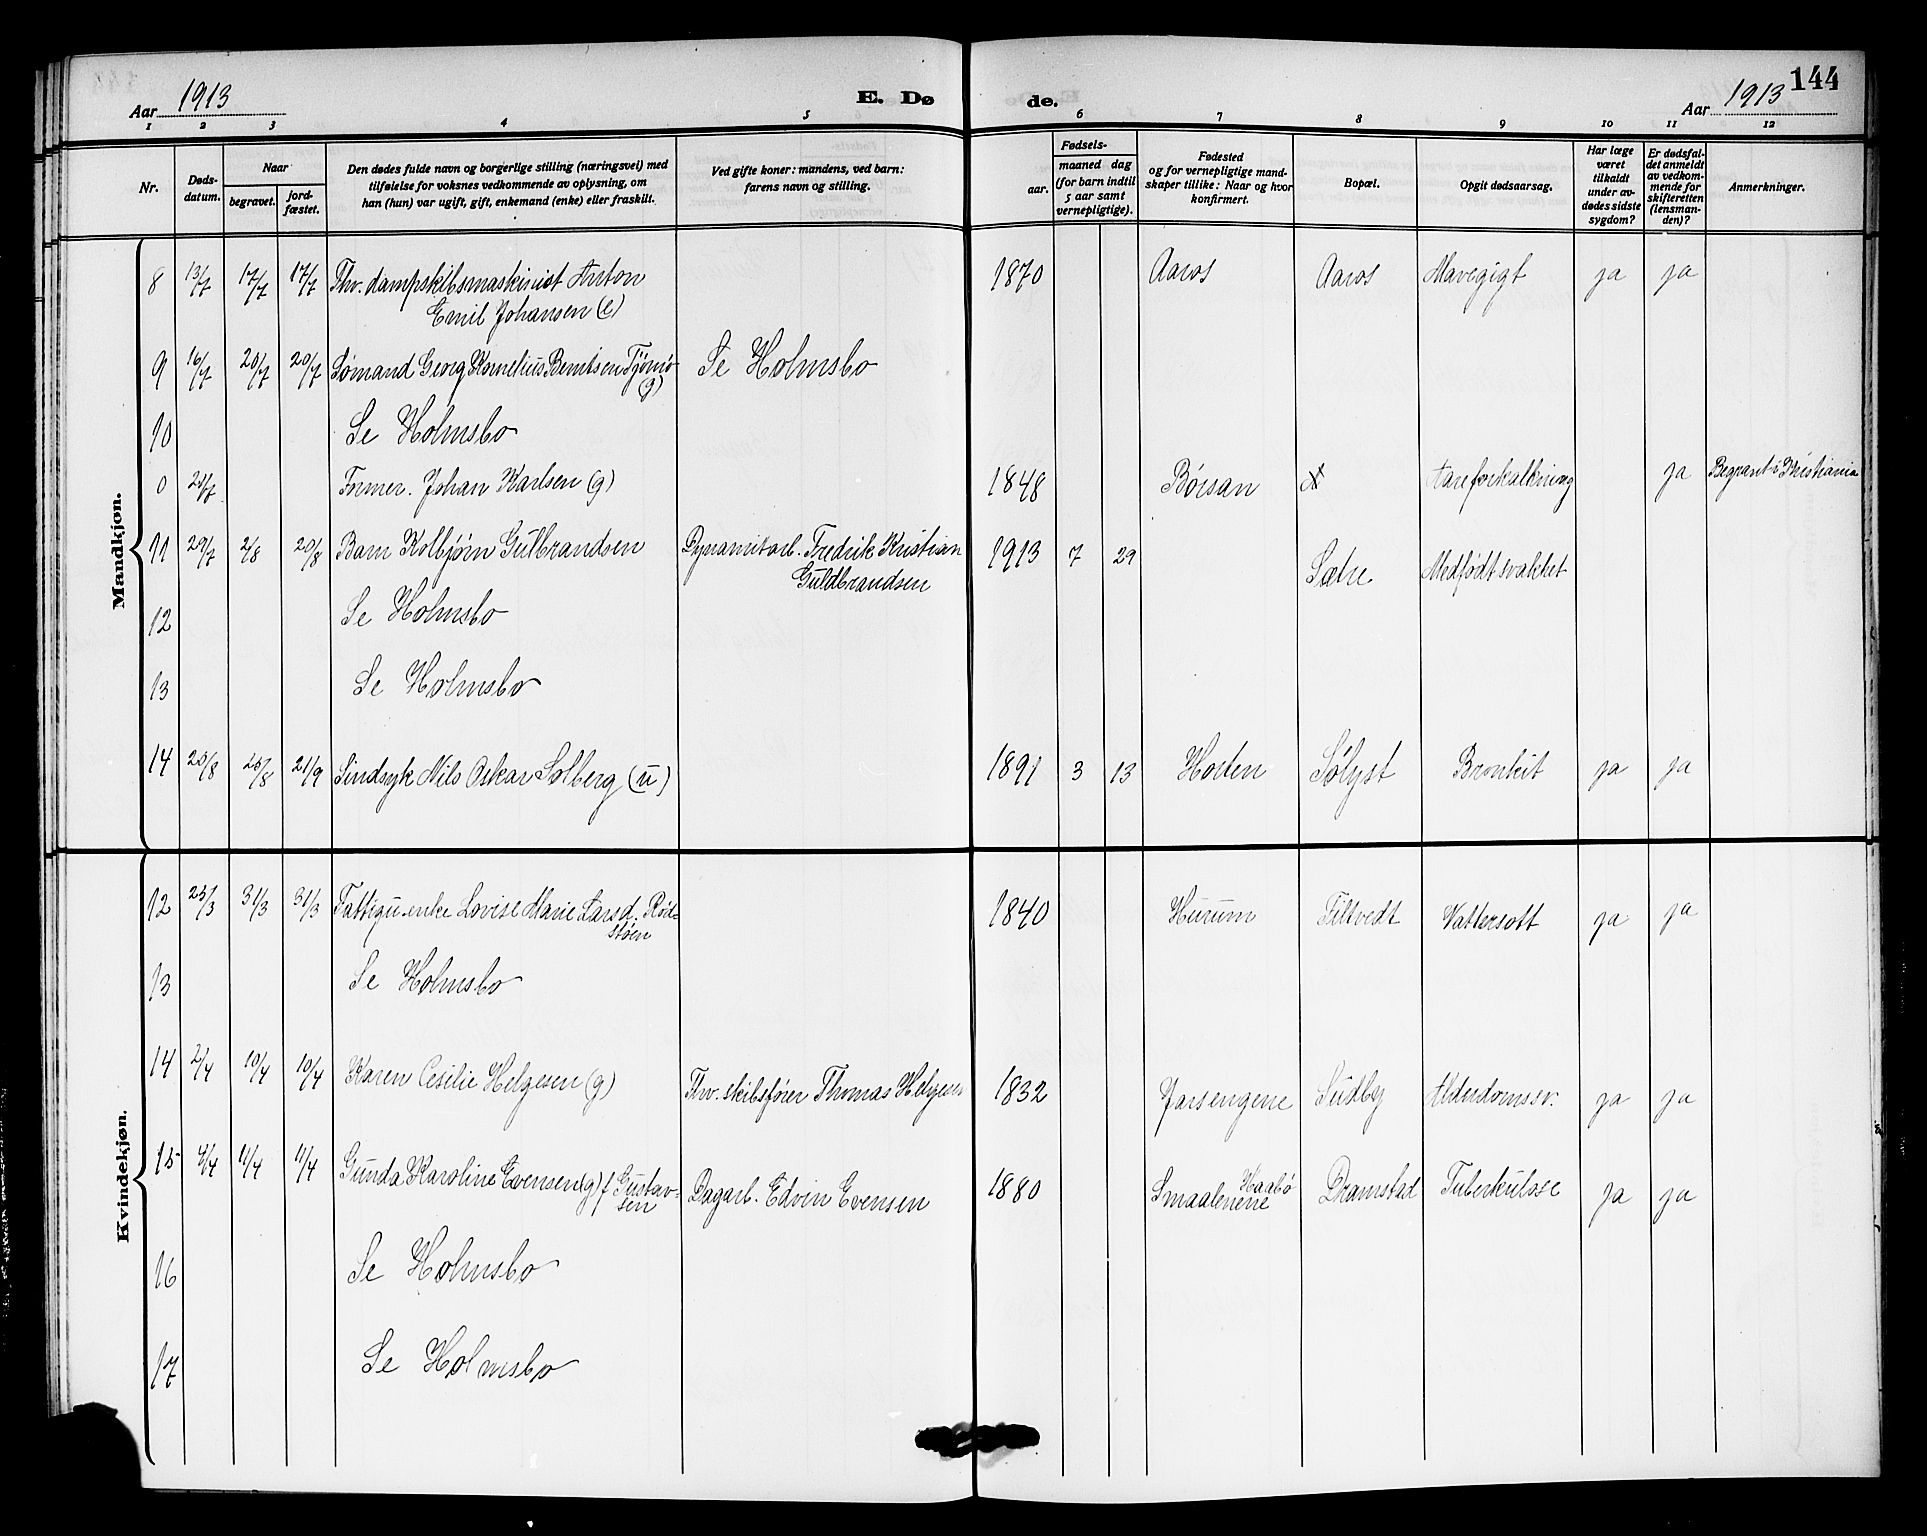 Aar 1913
E. Dø
de.
Aar 1913
144
1 2 3 4 5 6 7 8 9 10 11 12
Nr.
Døds-
datum.
Naar
begravet.
jord-
fæstet.
Den dødes fulde navn og borgerlige stilling (næringsvei) med
tilføielse for voksnes vedkommende av oplysning, om
han (hun) var ugift, gift, enkemand (enke) eller fraskilt.
Ved gifte koner: mandens, ved barn:
farens navn og stilling.
Fødsels-
aar.
maaned dag
(for barn indtil
5 aar samt
vernepligtige).
Fødested
og for vernepligtige mand-
skaper tillike: Naar og hvor
konfirmert.
Bopæl.
Opgit dødsaarsag.
Har læge
været
tilkaldt
under av-
dødes sidste
sygdom?
Er dødsfal-
det anmeldt
av vedkom-
mende for
skifteretten
(lensman-
den)?
Anmerkninger.
Mandkjøn.
8 13/7 17/7 17/7 Fhv. dampskibsmaskinist Anton 1870 Aaros Aaros Mavegigt ja ja
Emil Johansen (e)
9 16/7 20/7 20/7 Sømand Georg Kornelius Berntsen Tjømø Se Holmsbo
(g)
10 Se Holmsbo
0 Former. Johan Karlsen (g) 1848 Børsan Aareforkalkning ja Begravet i Kristiania
11 29/7 2/8 20/8 Barn Kolbjørn Gulbrandsen Dynamitarb. Fredrik Kristian 1913 7 29 Sætre Medfødt svakhet
Guldbrandsen
12 Se Holmsbo
13 Se Holmsbo
14 21/9 Sindsyk Nils Oskar Solberg (u) 1891 3 13 Horten Sølyst Bronkit ja ja
Kvindekjøn.
12 31/3 31/3 Fattigu. enke Lovise Marie Larsd. Rød- 1840 Hurum Filtvedt Vattersott ja ja
støen
13 Se Holmsbo
14 2/4 10/4 10/4 Karen Cesilie Helgesen (g) Fhv. skibsfører Thomas Helgesen 1832 Jarsengene Sudby Alderdomssv. ja ja
15 4/4 11/4 11/4 Gunda Karoline Evensen (g) f. Gustav- Dagarb. Edvin Evensen 1880 Smaalenene Haabø Dramstad Tuberkulose ja ja
sen
16 Se Holmsbo
17 Se Holmsbo